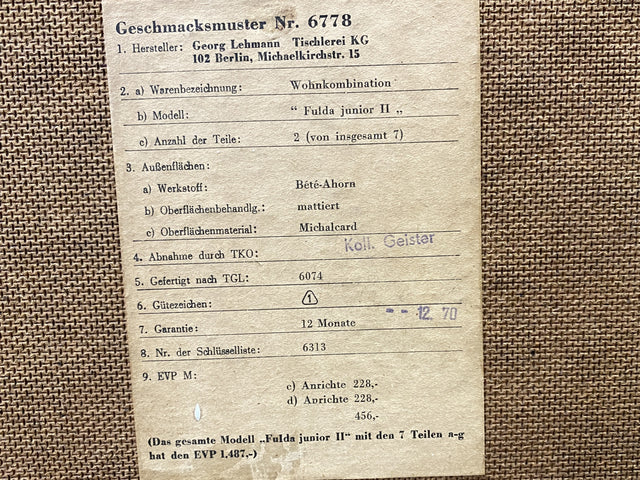 Geschmacksmuster Nr. 6778
1. Hersteller: Georg Lehmann Tischlerei KG
102 Berlin, Michaelkirchstr. 15
2. a) Warenbezeichnung: Wohnkombination
b) Modell: “ Fulda junior II „
c) Anzahl der Teile: 2 (von insgesamt 7)
3. Außenflächen:
a) Werkstoff: Bété-Ahorn
b) Oberflächenbehandlg.: mattiert
c) Oberflächenmaterial: Michalcard
4. Abnahme durch TKO: Koll. Geister
5. Gefertigt nach TGL: 6074
6. Gütezeichen: 1
7. Garantie: 12 Monate -- 12. 70
8. Nr. der Schlüsselliste: 6313
9. EVP M:
c) Anrichte 228,-
d) Anrichte 228,-
456,-
(Das gesamte Modell „Fulda junior II“ mit den 7 Teilen a-g
hat den EVP 1.487,-)